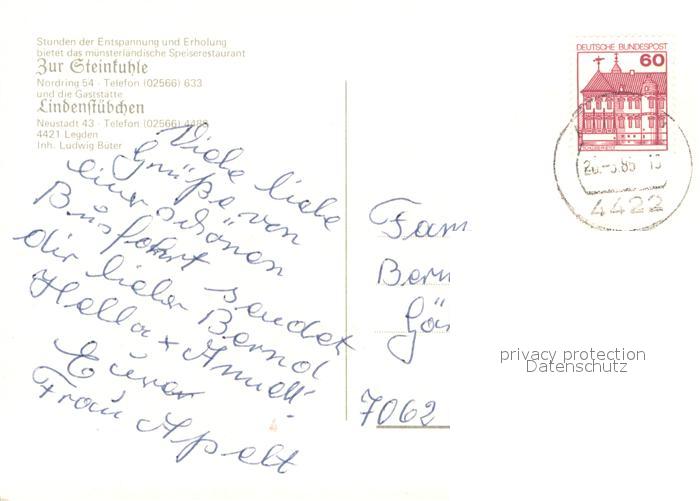 Stunden der Entspannung und Erholung
bietet das münsterländische Speiserestaurant
Zur Steinkuhle
Nordring 54 · Telefon (02566) 633
und die Gaststätte
Lindenstübchen
Neustadt 43 · Telefon (02566) 4488
4421 Legden
Inh. Ludwig Büter
Viele liebe
Grüße von
einer schönen
Busfahrt sendet
dir lieber Bernd
Hella + Annett!
Eure
Frau Apelt
DEUTSCHE BUNDESPOST
60
4422
Fam
Bern
Gös
7062
privacy protection
Datenschutz